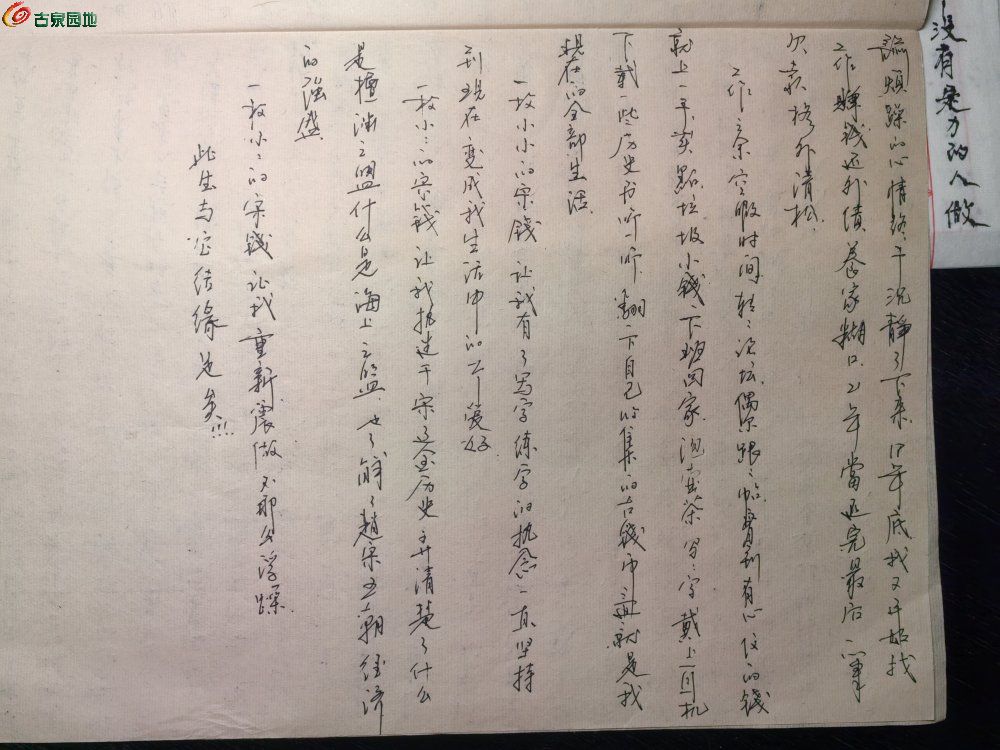 古泉园地
没有定力的人做
烦躁的心情终于沉静了下来 17年底我又开始找
工作 赚钱还外债 养家糊口 21年當还完最后一笔
欠款 格外清松.
工作之余空暇时间 转转论坛 偶尔跟跟帖 看到有心仪的錢
就上一手 买點垃圾小錢 下班回家 泡壶茶 写写字 戴上耳机
下载一些历史书听一听 翻一下自己收集的古錢币 這就是我
现在的全部生活.
一枚小小的宋錢 让我有了写字练字的执念 一直坚持
到现在变成我生活中的一个爱好
一枚小小的宋錢 让我执迷于宋辽金历史 弄清楚了什么
是檀渊之盟 什么是海上之盟 也了解了趙宋王朝 经济
的强盛
一枚小小的宋錢 让我重新震做 不那么浮躁
此生与它结缘足矣!!!